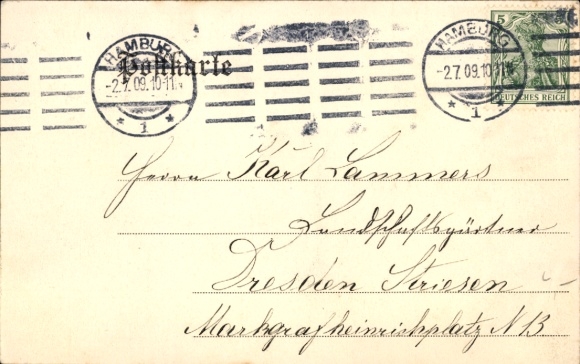 HAMBURG
-2.7.09.10-11V.
* 1 *
Postkarte
HAMBURG
-2.7.09.10-11V.
* 1 *
5
DEUTSCHES REICH
Herrn Karl Lammers
Landschaftsgärtner
Dresden Striesen
Markgrafheinrichplatz N 13